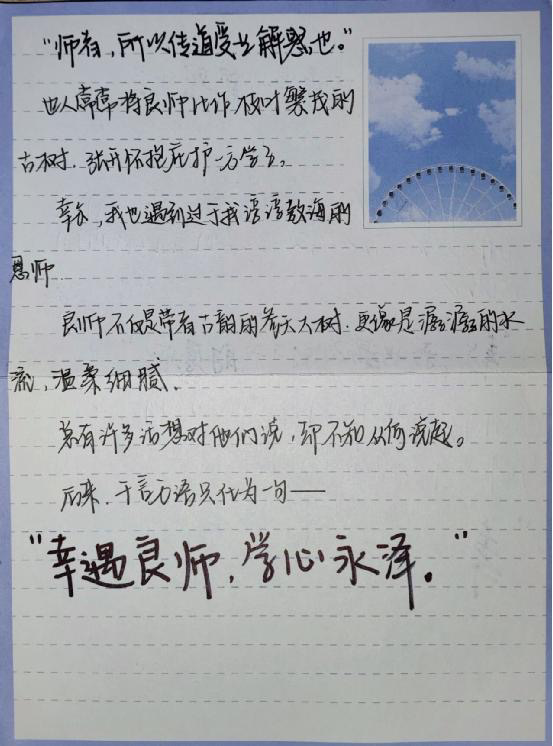 “师者，所以传道受业解惑也。”
世人常常将良师比作枝叶繁茂的
古树，张开怀抱庇护一方学子。
幸尔，我也遇到过于我谆谆教诲的
恩师
良师不仅是带有古韵的苍天大树，更像是潺潺的水
流，温柔细腻，
总有许多话想对他们说，却不知从何说起。
后来，千言万语只化为一句——
“幸遇良师，学心永泽。”